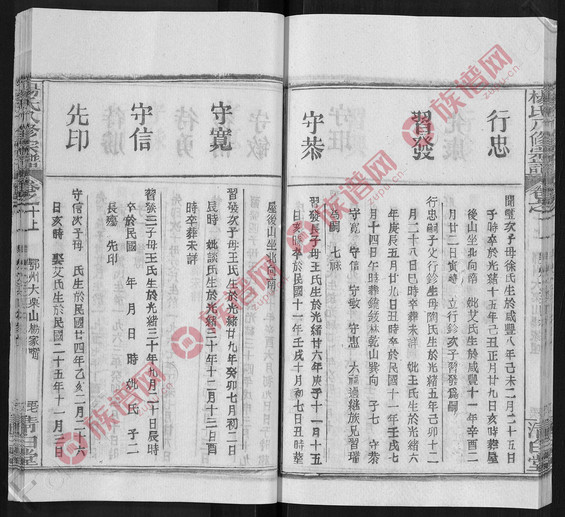 楊氏八修宗譜
清白堂
行忠
聞璽次子母徐氏生於咸豐八年己未二月二十五日
子時卒於光緒十五年己丑正月廿七日亥時葬屋
後山坐北向南 妣艾氏生於咸豐十一年辛酉二
月廿二日寅時 立行鈴次子習發為嗣
習發
行忠嗣子父行鈴生母陶氏生於光緒五年己卯十二
月二十八日巳時卒於民國 妣王氏生於光緒六
年庚辰五月廿九日丑時卒於民國十一年壬戌七
月十四日午時葬 林乾山巽向 子七 守恭
守寬 守信 守敏 守惠 大福過繼族兄習瑞
為嗣 七祿
守恭
習發長子母王氏生於光緒廿六年庚子十一月十五
日亥時卒於民國十一年壬戌十月初七日丑時葬
屋後山坐北向南
守寬
習發次子母王氏生於光緒廿九年癸卯七月初二日
辰時 妣談氏生於光緒三十年十二月十三日酉
時卒葬未詳
守信
習發三子母王氏生於光緒三十年九月二十日辰時
卒於民國 年 月 日時 妣氏 子二
長瓊 先印
先印
守信次子母 氏生於民國廿四年乙亥二月二十六
日亥時 娶艾氏生於民國二十五年十一月三日
楊氏八修宗譜
鄂州大泉山楊家嘴
清白堂
族谱网
zupu.cn